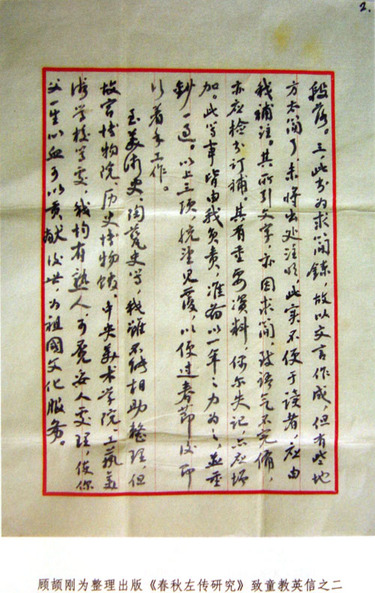 2.
段落。三、此书为求简鍊，故以文言作成，但有些地
方太简了，未将出处注明，此实不便于读者，应由
我补注。其所引文字，亦因求简，致语气不完备，
亦应检書订補，其有重要资料，偶尔失记，亦应增
加。此等事皆由我负责，准备以一年之力为之，並重
鈔一过。以上三项，统望见覆，以便过春节后即
行着手工作。
至美術史、陶瓷史等，我虽不能相助整理，但
故宫博物院、历史博物馆、中央美术学院、工艺美
术学校等处，我均有熟人，可觅妥人处理，使你
父一生心血可以贡献後世，为祖國文化服务。
顾颉刚为整理出版《春秋左传研究》致童教英信之二